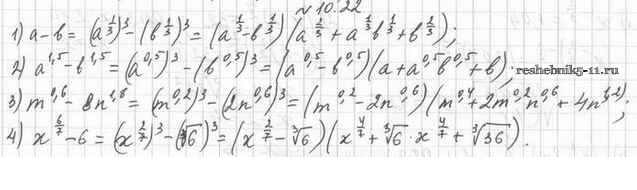 № 10.22
1) a-b = (a^{1/3})^3 - (b^{1/3})^3 = (a^{1/3} - b^{1/3})(a^{2/3} + a^{1/3} b^{1/3} + b^{2/3});
2) a^{1,5} - b^{1,5} = (a^{0,5})^3 - (b^{0,5})^3 = (a^{0,5} - b^{0,5})(a + a^{0,5} b^{0,5} + b);
reshebnik5-11.ru
3) m^{0,6} - 8n^{1,8} = (m^{0,2})^3 - (2n^{0,6})^3 = (m^{0,2} - 2n^{0,6})(m^{0,4} + 2m^{0,2} n^{0,6} + 4n^{1,2});
4) x^{6/7} - 6 = (x^{2/7})^3 - (∛6)^3 = (x^{2/7} - ∛6)(x^{4/7} + ∛6 · x^{4/7} + ∛36).